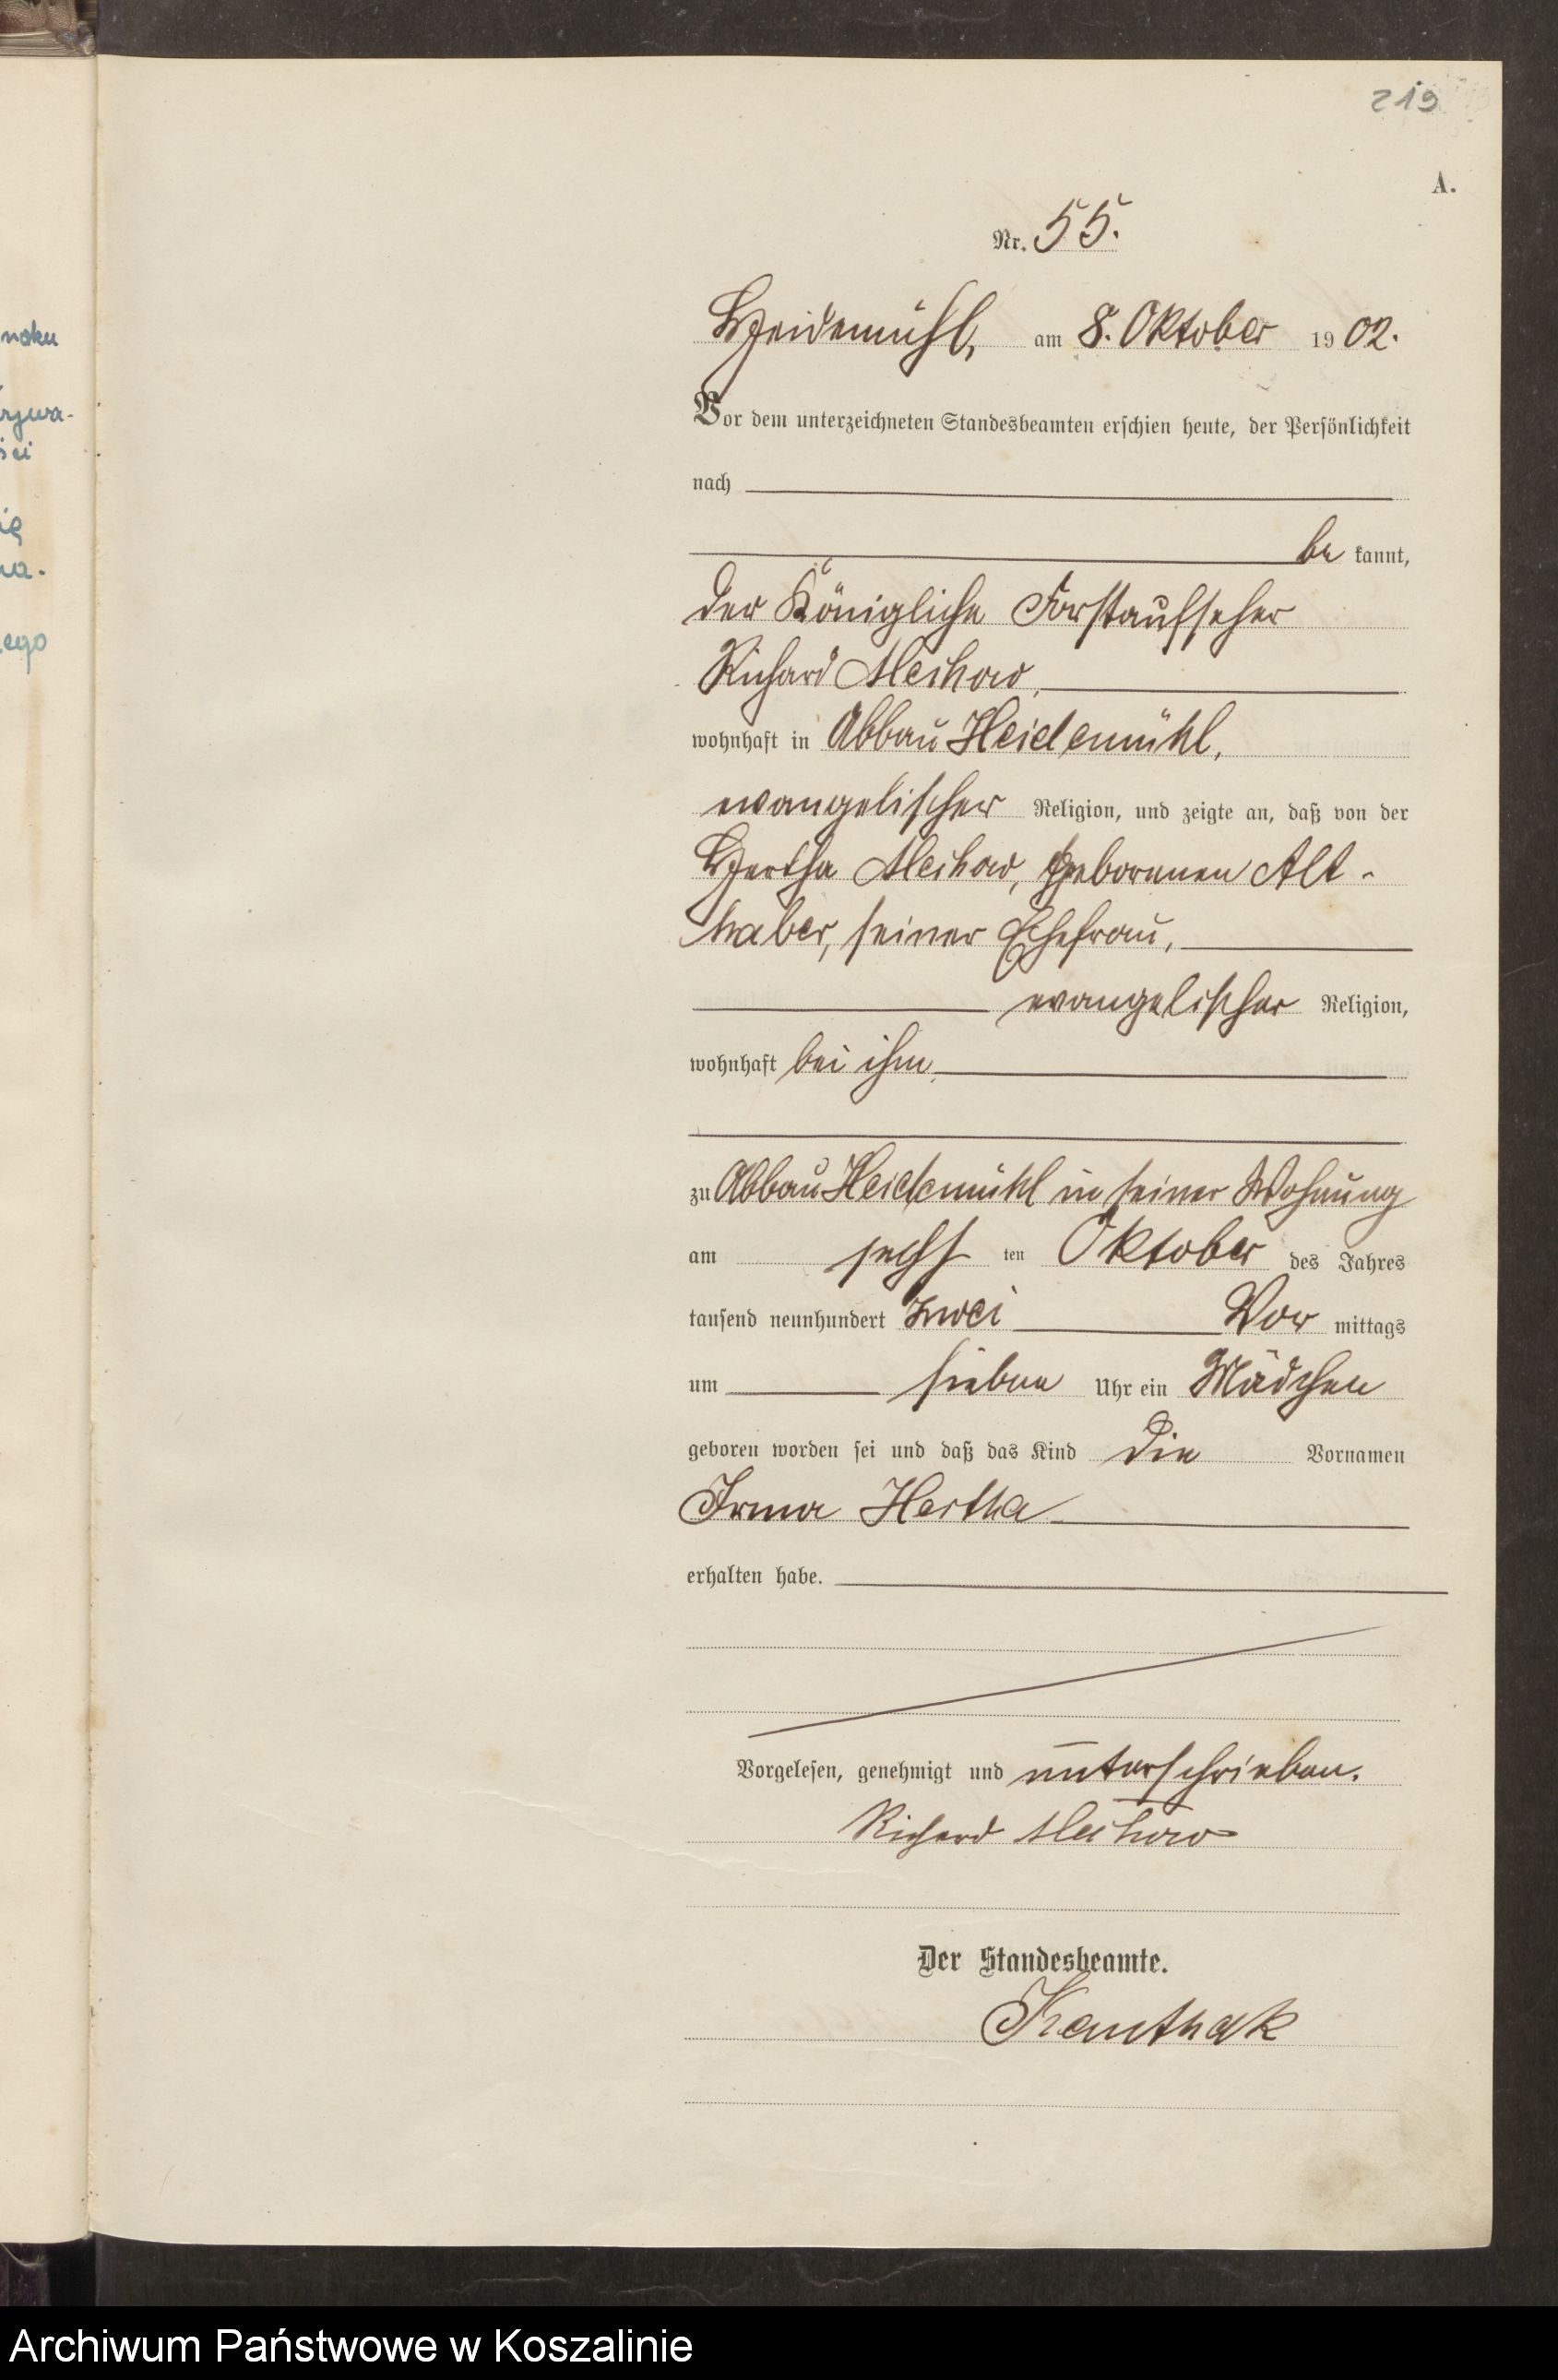 noku
rzywa-
ści
ię
na.
ego
219
A.
Nr. 55.
Heidemühl, am 8. Oktober 1902.
Vor dem unterzeichneten Standesbeamten erschien heute, der Persönlichkeit
nach
be kannt,
der Königliche Forstaufseher
Richard
wohnhaft in Abbau Heidemühl,
evangelischer Religion, und zeigte an, daß von der
Hertha geborenen Alt-
haber, seiner Ehefrau,
evangelischer Religion,
wohnhaft bei ihm,
zu Abbau Heidemühl in seiner Wohnung
am sechs ten Oktober des Jahres
tausend neunhundert zwei Vor mittags
um sieben Uhr ein Mädchen
geboren worden sei und daß das Kind die Vornamen
Irma Hertha
erhalten habe.
Vorgelesen, genehmigt und unterschrieben.
Richard
Der Standesbeamte.
Kanthak
Archiwum Państwowe w Koszalinie